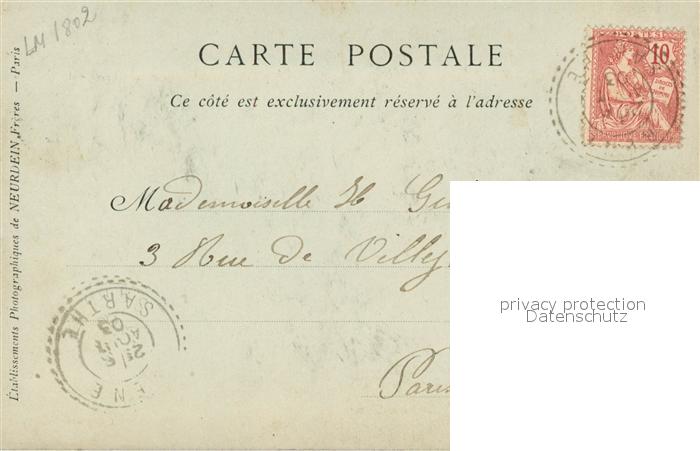 LM 1802
CARTE POSTALE
Ce côté est exclusivement réservé à l'adresse
POSTES
10
Mademoiselle
3 Rue de
Paris
privacy protection
Datenschutz
SARTHE
AOUT
03
Établissements Photographiques de NEURDEIN Frères — Paris